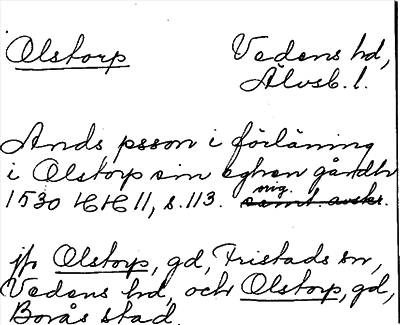 Olstorp Vedens hd,
Älvsb. l.
Ands psson i förläning
i Olstorp sin eghen gårdh
1530 HH 11, s. 113. samt. avskr.
orig.
jfr Olstorp, gd, Fristads sn,
Vedens hd, och Olstorp, gd,
Borås stad.